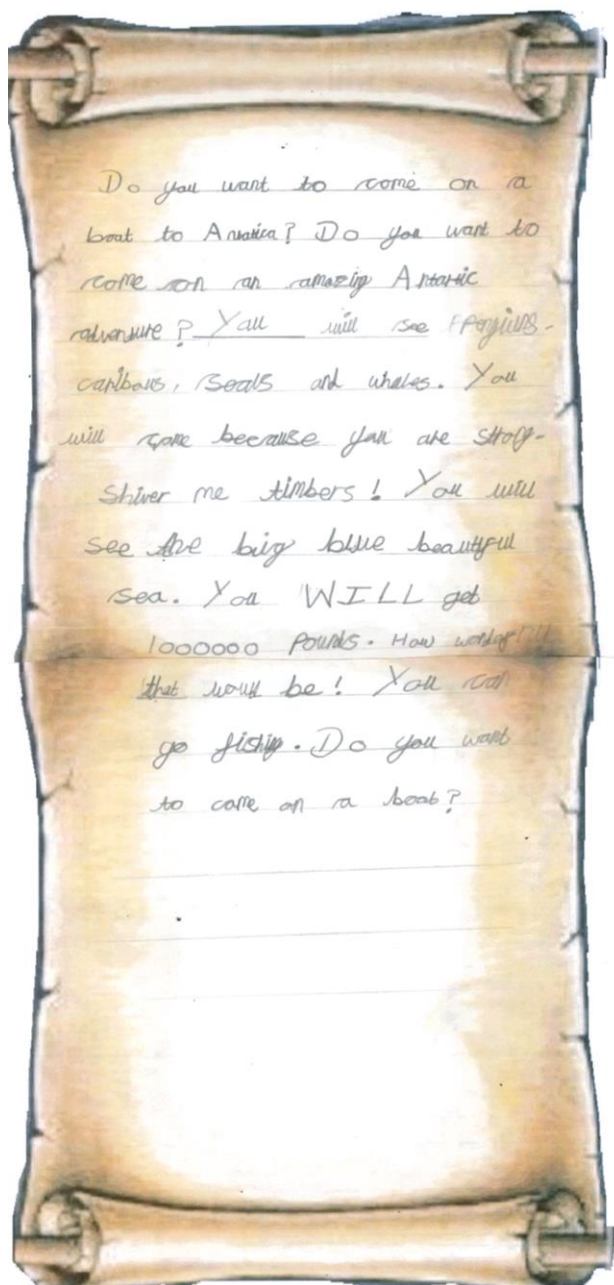 Do you want to come on a
boat to Antatica? Do you want to
come on an amazing Antartic
adventure? You will see pengiuns-
caribous, seals and whales. You
will come because you are strong-
Shiver me timbers! You will
see the big blue beautyful
sea. You WILL get
1000000 Pounds. How
that would be! You can
go fishing. Do you want
to come on a boat?